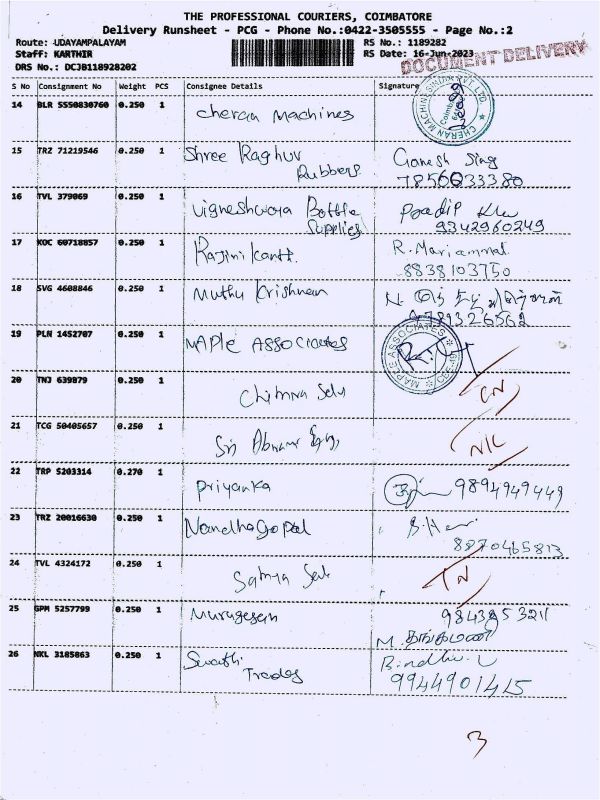 THE PROFESSIONAL COURIERS, COIMBATORE
Delivery Runsheet - PCG - Phone No.:0422-3505555 - Page No.:2
Route: UDAYAMPALAYAM RS No.: 1189282
Staff: KARTHIR RS Date: 16-Jun-2023
DRS No.: DCJB118928202 DOCUMENT DELIVERY
S No Consignment No Weight PCS Consignee Details Signature
14 BLR 5550830760 0.250 1 Cheran Machines
15 TRZ 71219546 0.250 1 Shree Raghuv Ganesh Sing
Rubbers 7856033380
16 TVL 379069 0.250 1 Vigneshwara Bottle Pradip
Supplies 9342960249
17 KOC 60718857 0.250 1 Rajini kantt. R. Mariammal
8838103750
18 SVG 4608846 0.250 1 Muthu Krishnan N.
9789326562
19 PLN 1452707 0.250 1 MAPle ASSociates MAPLE ASSOCIATES
20 TNJ 639879 0.250 1 Chitnra Selu
21 TCG 50405657 0.250 1 Sri
22 TRP 5203314 0.270 1 Priyanka 9894949449
23 TRZ 20016630 0.250 1 Nandhagopal
8870465813
24 TVL 4324172 0.250 1
25 GPM 5257799 0.250 1 Murugesan 984385 3211
M. தங்கமணி
26 NKL 3185863 0.250 1 Swathi Bindhu. L
Trades 9944901415
3